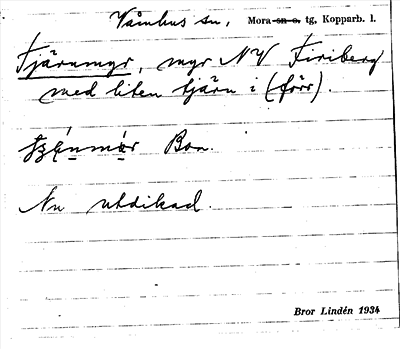 Våmhus sn, Mora tg, Kopparb. l.
Tjärnmyr, myr NV Firiberg
med liten tjärn i (förr).
Bon.
Nu utdikad.
Bror Lindén 1934